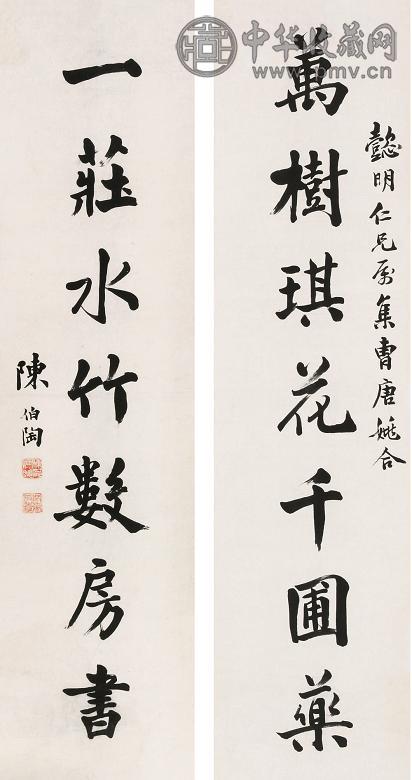 中华收藏网
www.pmv.cn
懿明仁兄属集曹唐姚合
萬樹琪花千圃藥
一莊水竹數房書
陳伯陶